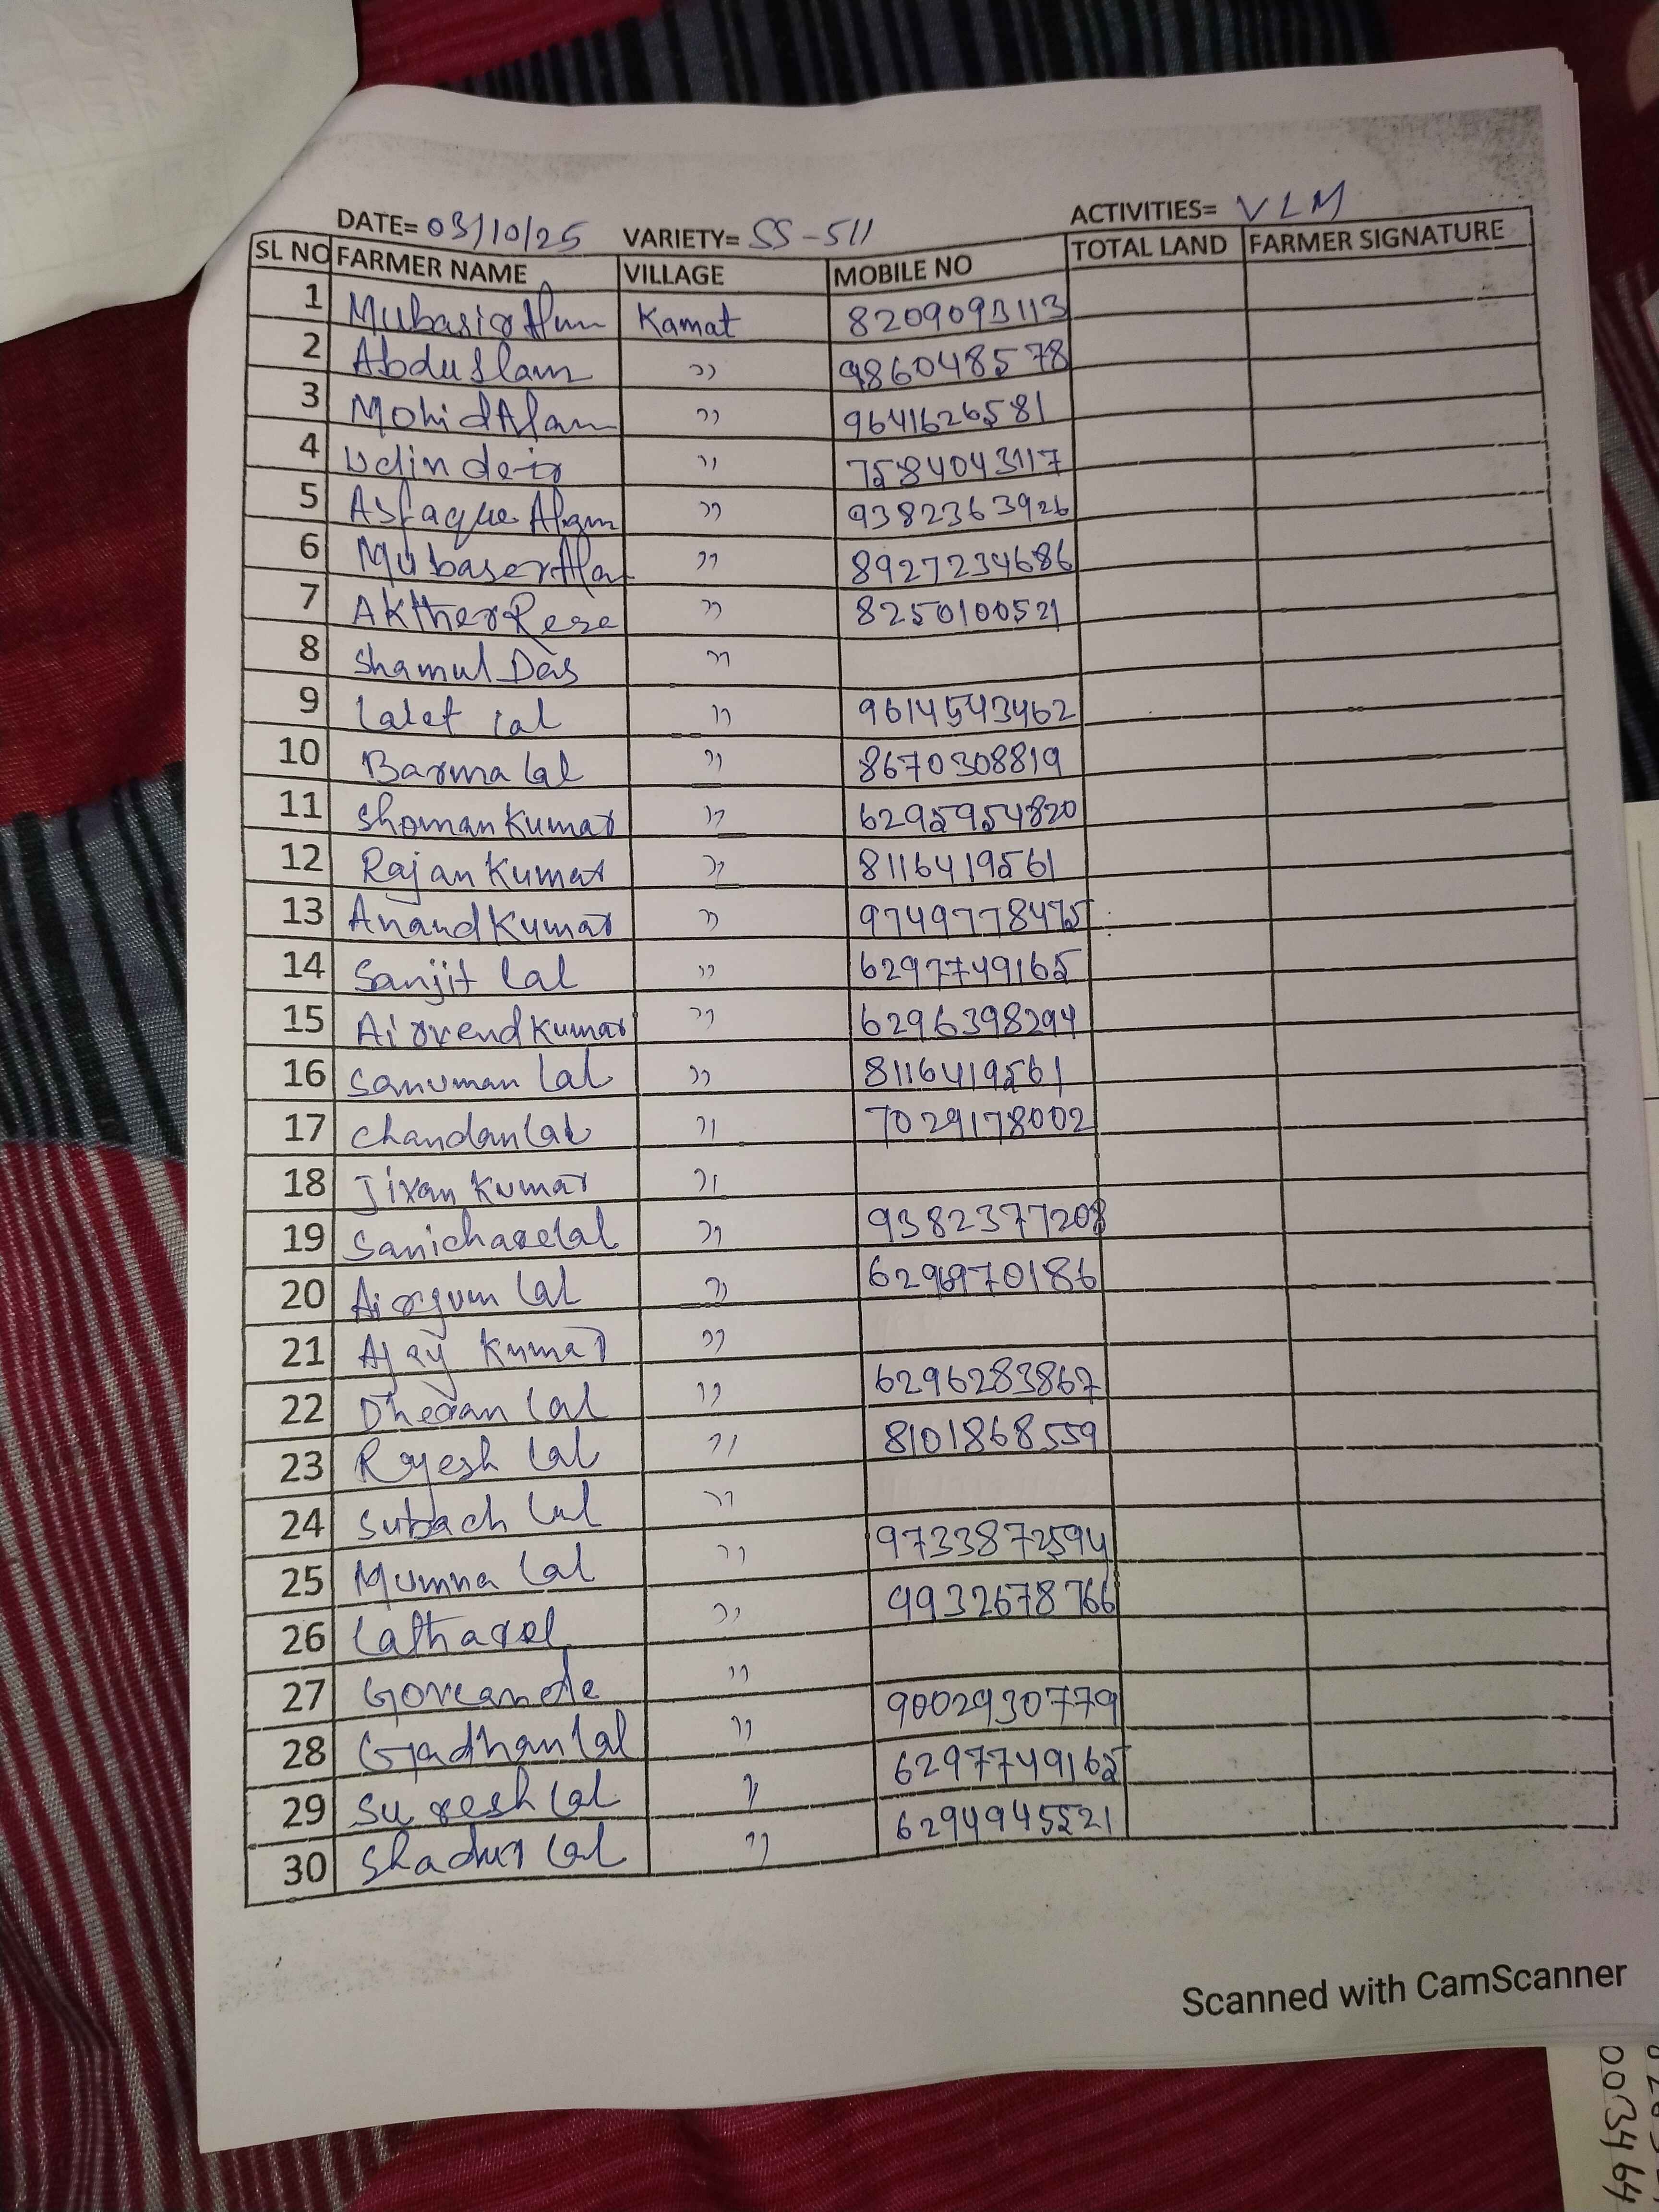 DATE= 03/10/25 VARIETY= SS-511 ACTIVITIES= VLM
SL NO FARMER NAME VILLAGE MOBILE NO TOTAL LAND FARMER SIGNATURE
1 Kamat 8209093113
2 Abdu Slam " 986048578
3 Mohid Alam " 9641626581
4 " 7584043117
5 Asfaque Alam " 9382363926
6 Mubaser Ala " 8927234686
7 Akther Reza " 8250100521
8 Shamul Das "
9 Lalet Lal " 9614543462
10 Barma Lal " 8670308819
11 Shoman Kumar " 6295954820
12 Rajan Kumar " 8116419561
13 Anand Kumar " 9749778475
14 Sanjit Lal " 6297749165
15 Airvend Kumar " 6296398294
16 Sanuman Lal " 8116419561
17 Chandan Lal " 7029178002
18 Jivan Kumar "
19 Sanicharelal " 9382377208
20 Airgum Lal "
21 Ajay Kumar "
22 Dheran Lal " 6296283867
23 Rajesh Lal " 8101868559
24 Subach Lal "
25 Mumna Lal " 9733872594
26 " 9932678766
27 "
28 Gadhan Lal " 9002930779
29 Suresh Lal " 6297749165
30 Lal " 6294945521
Scanned with CamScanner